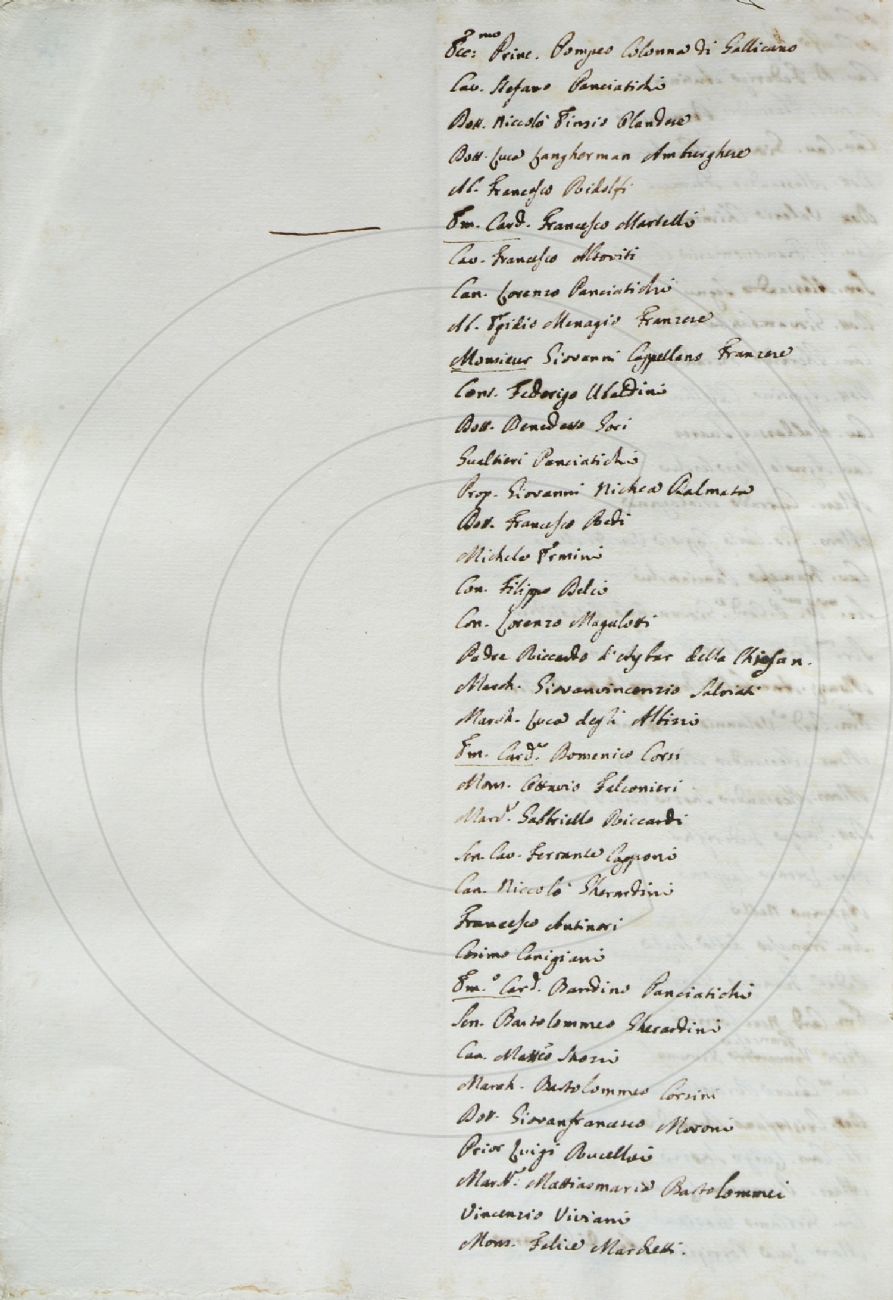 Ecc:mo Princ. Pompeo Colonna di Gallicano
Cav. Stefano Panciatichi
Dott. Niccolò Einsio Olandese
Dott. Luca Langherman Amburghese
Ab. Francesco Ridolfi
Em. Card. Francesco Martelli
Cav. Francesco Altoviti
Can. Lorenzo Panciatichi
Ab. Egidio Menagio Franzese
Monsieur Giovanni Cappellano Franzese
Con. Federigo Ubaldini
Dott. Benedetto Gori
Gualtieri Panciatichi
Prop. Giovanni Nichea Dalmata
Dott. Francesco Redi
Michele Ermini
Con. Filippo
Con. Lorenzo Magalotti
Padre Riccardo della
March. Giovanvincenzio Salviati
March. Luca degli Albizi
Em. Card. Domenico Corsi
Mons. Ottavio Falconieri
March. Gabbriello Riccardi
Sen. Cav. Ferrante Capponi
Can. Niccolò Gherardini
Francesco Antinori
Cosimo Canigiani
Em.o Card. Bandino Panciatichi
Sen. Bartolommeo Gherardini
Can. Matteo Strozzi
March. Bartolommeo Corsini
Dott. Giovanfrancesco Moroni
Prior Luigi Rucellai
March. Mattiasmaria Bartolommei
Vincenzio Viviani
Mons. Felice Marchetti.